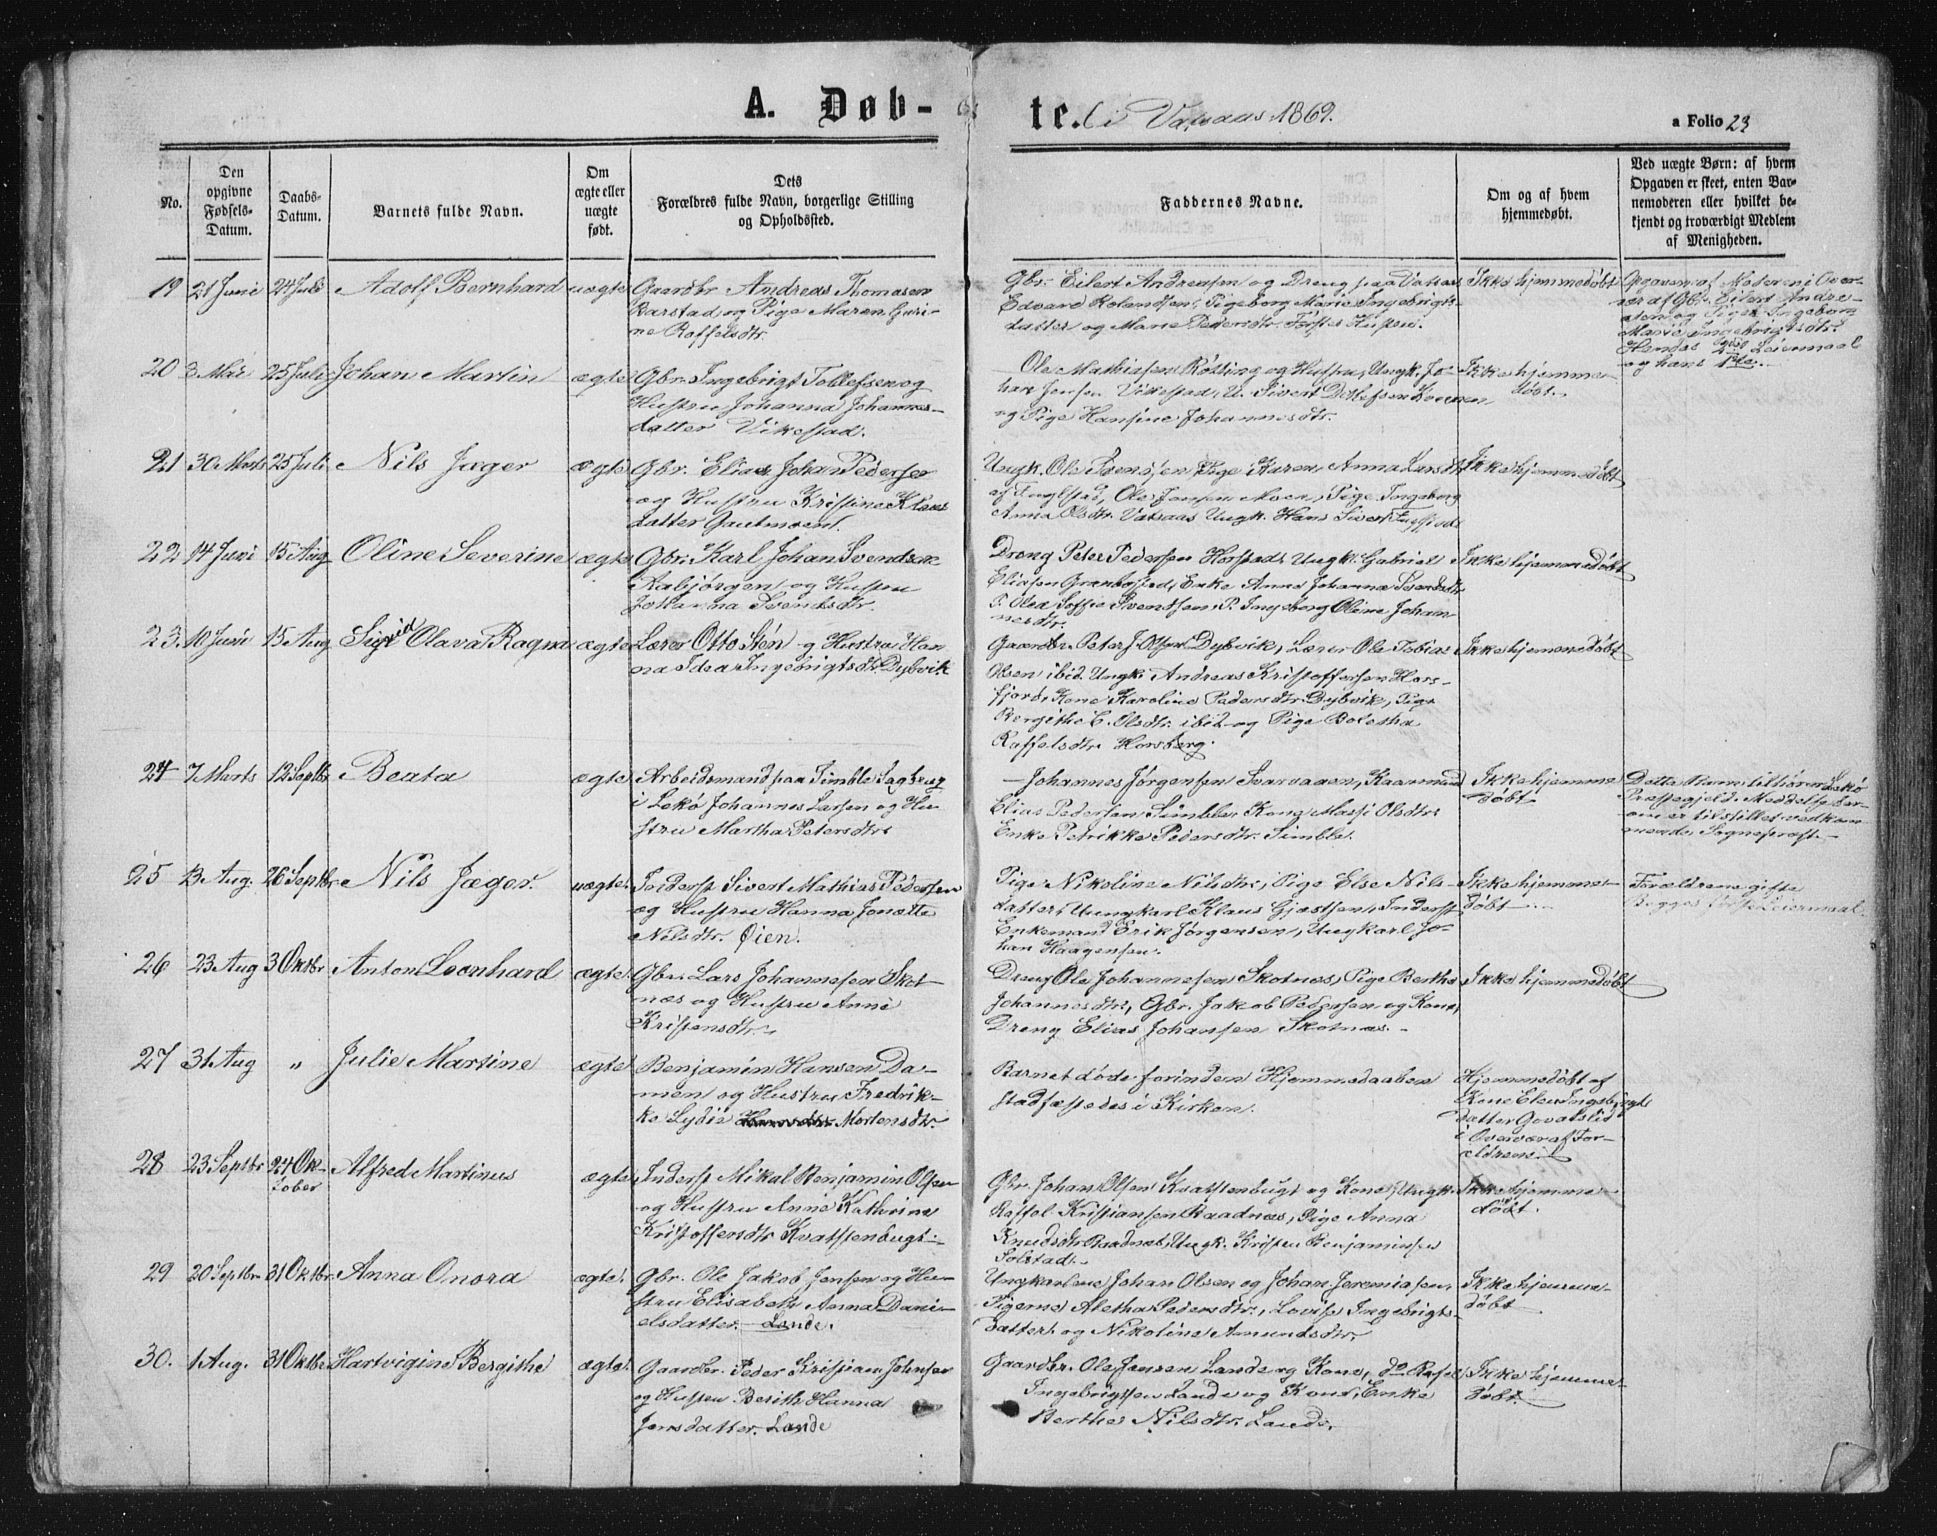 A. Døb-te. i Vassaas 1869.
a Folio 23
No.
Den opgivne Fødsels-Datum.
Daabs-Datum.
Barnets fulde Navn.
Om ægte eller uægte født.
Dets Forældres fulde Navn, borgerlige Stilling og Opholdssted.
Faddernes Navne.
Om og af hvem hjemmedøbt.
Ved uægte Børn: af hvem Opgaven er skeet, enten Barnemoderen eller hvilket bekjendt og troværdigt Medlem af Menigheden.
19 21 Juni 24 Juli Adolf Bernhard uægte
Gaardbr Andreas Thomasen
Barstad og Pige Maren Guri-
ne Roffelsdtr.
Gbr. Eilert Andreasen og Dreng paa Vatsaas
Edvard Rolandsen, Pige Ingeborg Marie Ingebrigts-
datter og Marie Pedersdtr.
Ikke hjemmedøbt
Opgaven af Moderen i Over-
vær af Gbr. Eilert Andre-
asen og Pige Ingeborg
Marie Ingebrigtsdtr.
Hendes 2det Leiermaal
og hans 1ste.
20 3 Mai 25 Juli Johan Martin ægte
Gbr. Ingebrigt Tollefsen og
Hustru Johanna Johannes-
datter Vikestad.
Ole Mathissen Røtting og Hustru, Ungk. Jo-
han Jensen Vikestad, U. Sivert Detlefsen
og Pige Hansine Johannesdtr.
Ikke hjemme-
døbt.
21 30 Marts 25 Juli Nils Jæger ægte
Gbr. Elias Johan Pedersen
og Hustru Kristine Klaus
datter Gautmoen.
Ungk. Ole Jensen, Pige Karen Anna Larsdtr
Ole Jansen Moen, Pige Ingeborg
Anna Olsdtr. Vatsaas Ungk. Hans Sivert
Ikke hjemmedøbt
22 14 Juni 15 Aug Oline Severine ægte
Gbr. Karl Johan Svendsen
Kalvjørgen og Hustru
Johanna Svendsdtr.
Dreng Peter Pedersen Horstad, Ungk. Gabriel
Eliasen Granbostad, Enke Anne Johanna Svendsdtr
P. Olea Soffie Sventsen, P. Ingeborg Oline Johan-
nesdtr.
Ikke hjemmedøbt
23. 10 Juni 15 Aug Sigrid Olava Ragna ægte
Lærer Otto Stén og Hustru Han-
na Idea Ingebrigtsdtr. Dybvik
Gaardbr. Peter J. Olsen Dybvik, Lærer Ole Tobias
Olsen ibid. Ungk. Andreas Kristoffersen Hors-
fjord, Kone Karoline Pedersdtr. Dybvik, Pige
Bergithe C. Olsdtr. ibid og Pige Boletha
Raffelsdtr. Horsberg.
Ikke hjemmedøbt
24 7 Marts 12 Septbr Beata ægte
Arbeidsmand paa Simble Sagbrug
i Lekø Johannes Larsen og Hu-
stru Martha Petersdtr
Johannes Jørgensen Svarvaaen, Kaarmand
Elias Pedersen Simble, Kone Massi Olsdtr
Enke Petrikke Pedersdtr. Simble.
Ikke hjemme
døbt
Dette Barn tilhører Lekø
Præstegjeld. Meddelelse her-
om er tilstillet vedkom-
mende Sognepræst.
25 13 Aug. 26 Septbr Nils Jæger. uægte.
Inderst Sivert Mathias Pedersen
og Hustru Hanna Jonette
Nilsdtr. Øien.
Pige Nikoline Nilsdtr, Pige Else Nils-
datter, Ungkarl Klaus Gjæstsen, Inderst,
Enkemand Erik Jørgensen, Ungkarl Jo-
han Haagensen.
Ikke hjemme-
døbt
Forældrene gifte
Begges første Leiermaal.
26 23 Aug 3 Oktbr Anton Leonhard ægte.
Gbr. Lars Johannesen Skot-
nes og Hustru Anne
Kristensdtr.
Dreng Ole Johannesen Skotnes, Pige Berthe
Johannesdtr, Gbr. Jakob Petersen og Kone,
Dreng Elias Johansen Skotnes.
Ikke hjemmedøbt
27 31 Aug " Julie Martine ægte
Benjamin Hansen Da-
men og Hustru Fredrik-
ke Lydie Mortensdtr.
Barnet døde forinden Hjemmedaaben
stadfæstedes i Kirken.
Hjemmedøbt af
Kone Elen Ingebrigts
datter
i Overvær af For-
ældrene.
28 23 Septbr 24 Ok-
tober Alfred Martinus ægte
Inderst Mikal Benjamin Olsen
og Hustru Anne Kathrine
Kristoffersdtr Kvatstenbugt.
Gbr. Johan Olsen Kvatstenbugt og Kone, Ungk.
Raffel Kristiansen Raadnæs, Pige Anna
Knudsdtr Raadnæs, Ungk. Kristen Benjaminsen
Solstad.
Ikke hjemme-
døbt.
29 20 Septbr 31 Oktbr Anna Onora ægte.
Gbr. Ole Jakob Jensen og Hu-
stru Elisabeth Anna Dani-
elsdatter Lande.
Ungkarlene Johan Olsen og Johan Jeremiasen,
Pigerne Aletha Pedersdtr., Lovise Ingebrigts-
datter og Nikoline Amundsdtr.
Ikke hjemme-
døbt
30. 1 Aug. 31 Oktbr Hartvigine Bergithe ægte.
Gaardbr. Peder Kristian Johnsen
og Hustru Berith Hanna
Jensdatter Lande
Gaardbr. Ole Jensen Lande og Kone, do Rafel
Ingebrigtsen Lande og Kone, Enke
Berthe Nilsdtr. Lande.
Ikke hjemme-
døbt.